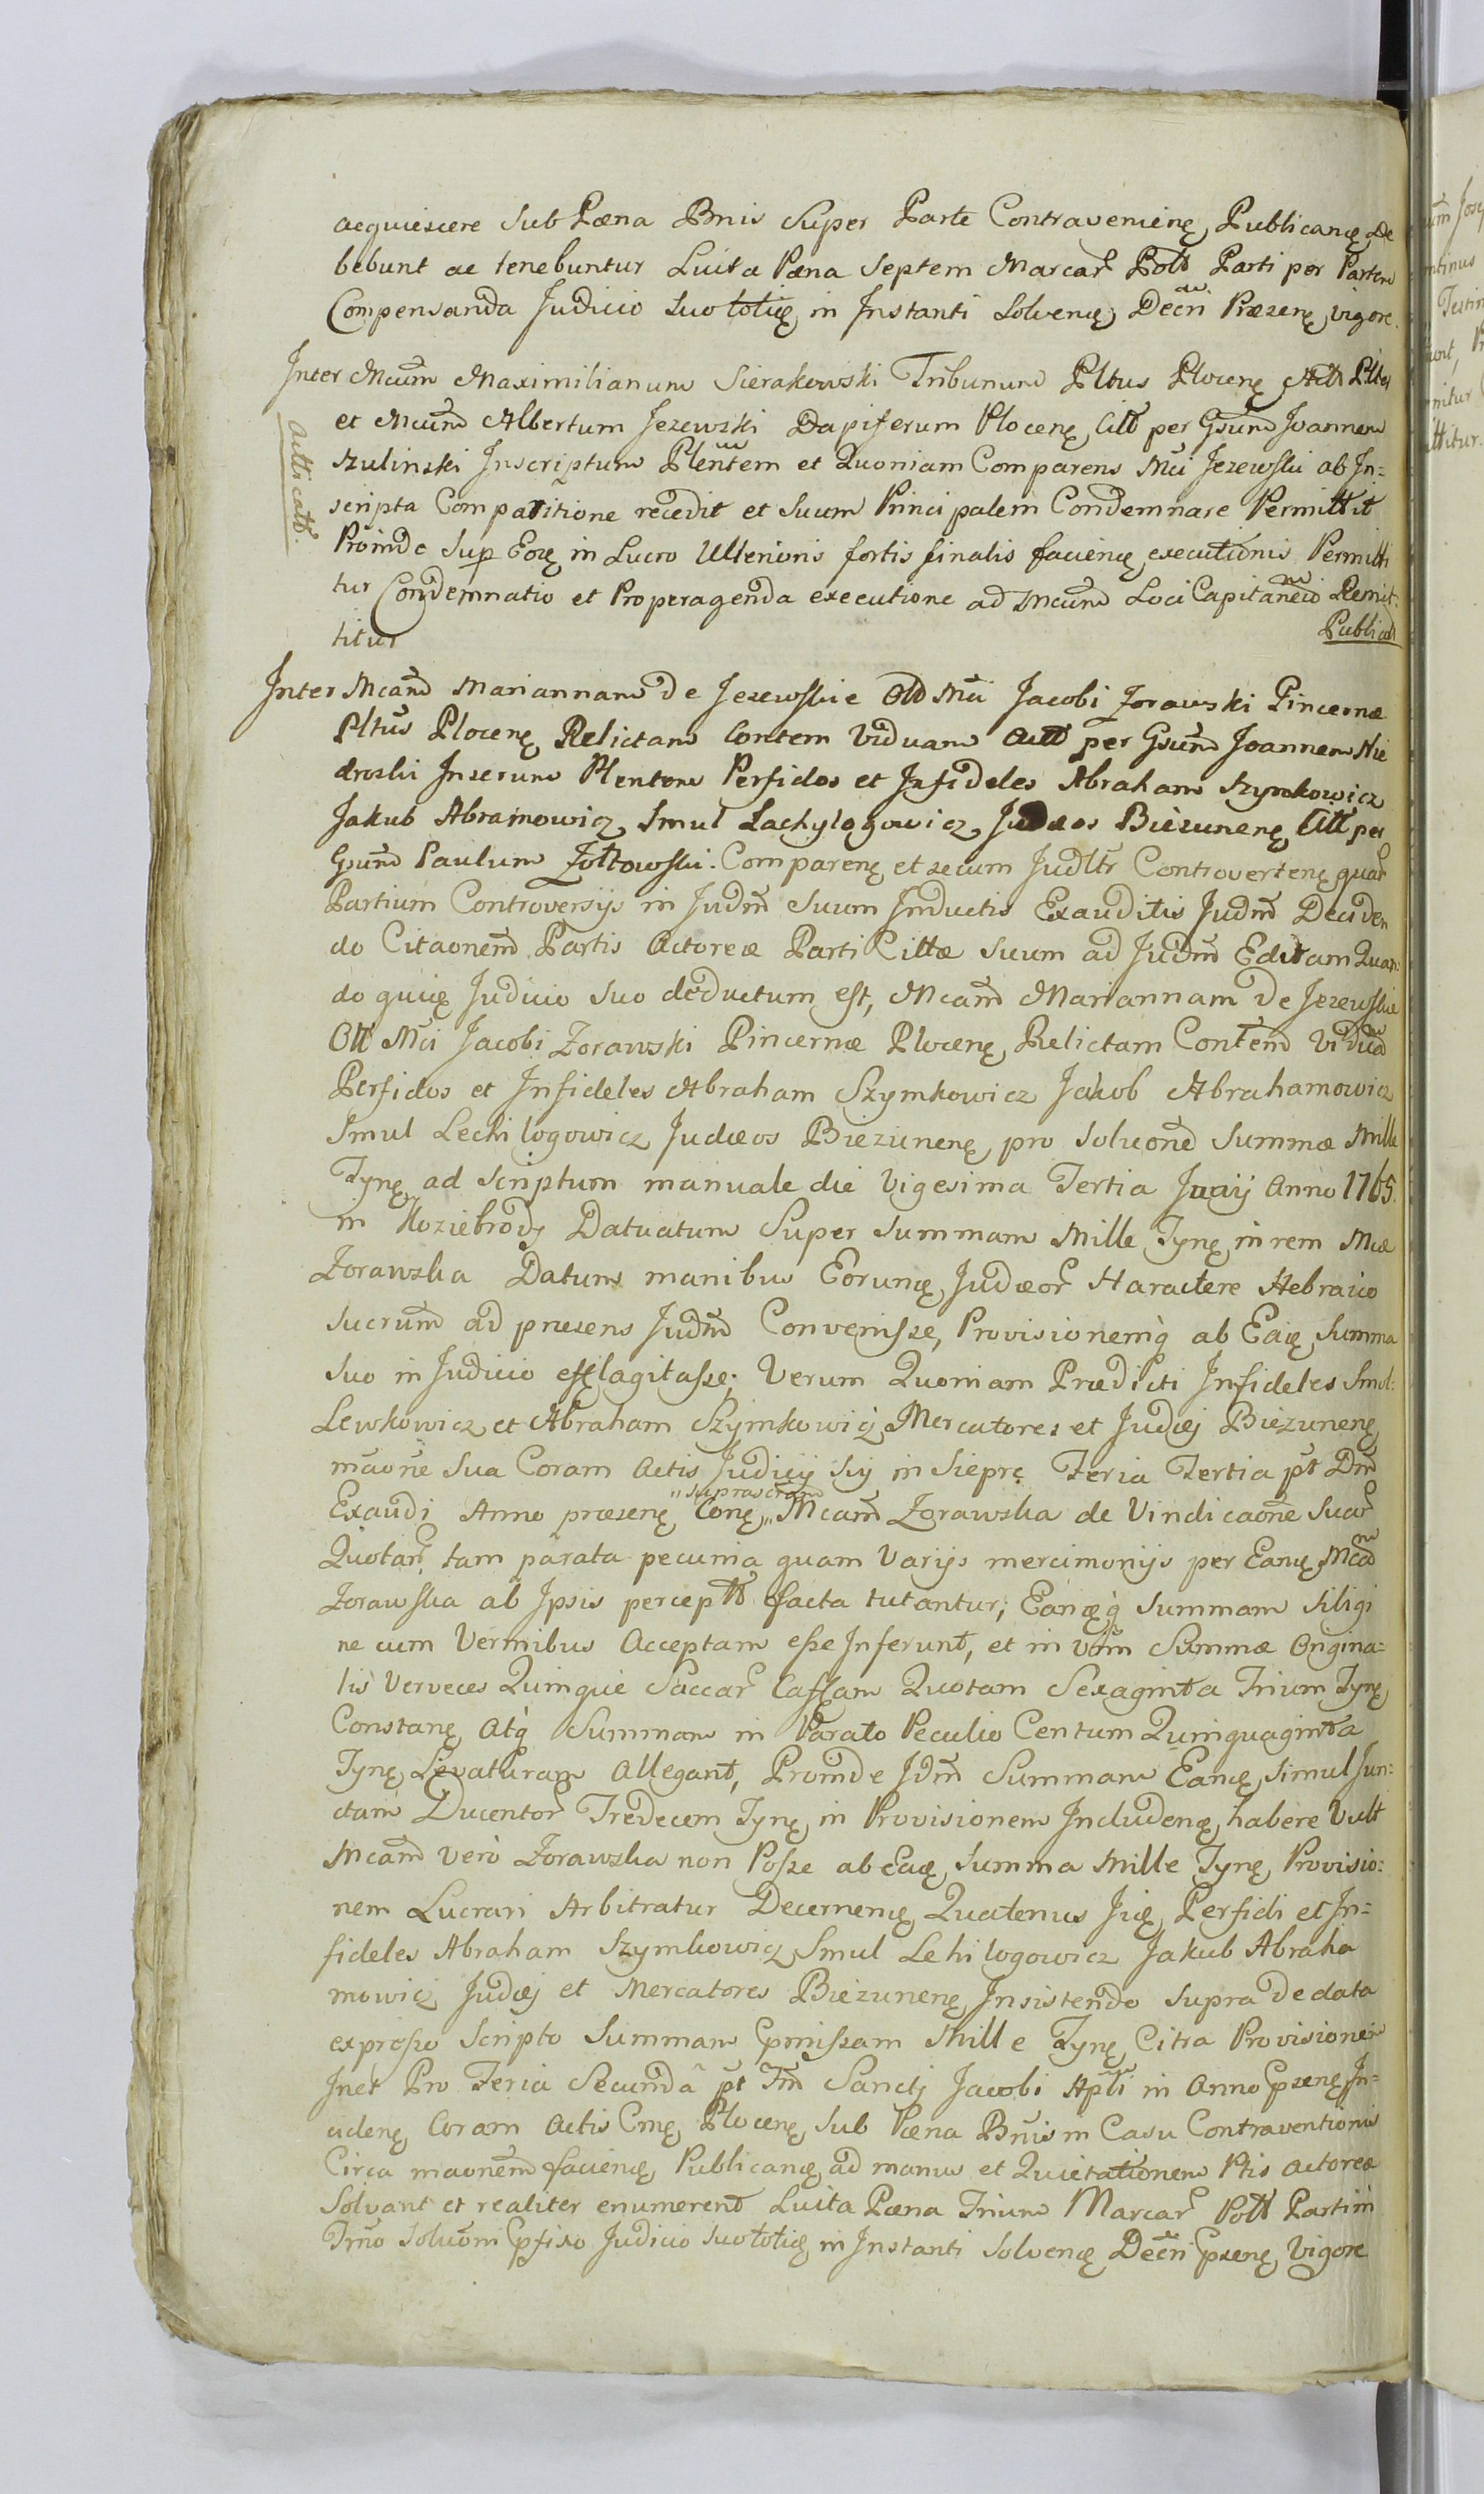 acquiescere Sub Pæna Bnis Super Parte Contravenienę Publicancę De
bebunt ac tenebuntur Luita Pæna Septem Marcar Polł Parti per Partem
Compensanda Judicio Suo totię in Instanti Solvencę Decri Præsenę vigore.
Inter Mcum Maximilianum Sierakowski Tribunum Pltus Plocenę Act Pltes
et Mcum Albertum Jezewski Dapiferum Plocenę Citt per Gsum Joannem
Szulinski Inscriptum Plentem et Quoniam Comparens Mci Jezewski ab In=
scripta Comparitione recedit et Suum Principalem Condemnare Permittit
Proinde Sup Eoę in Lucro Ulterioris fortis finalis faciencę executionis Permitti
tur Condemnatio et Pro peragenda executione ad Mcum Loci Capitaneum Remit:
titur
Publicat
Atticatt.
Inter Mcam Mariannam de Jezewskie Olt Mci Jacobi Zorawski Pincernæ
Pltus Plocenę Relictam Contem Viduam Act per Gsum Joannem Nie
droski Inserum Plentem Perfidos et Infideles Abraham Szymkowicz
Jakub Abramowicz Smul Lachylogowicz Judæos Biezunenę Citt per
Gsum Paulum Zołtowski. Comparenę et secum Judltr Controvertenę quar
Partium Controversijs in Judm Suum Inductis Exauditis Judm Deciden
do Citaonem Partis Actoreæ Parti Cittæ Suum ad Judm Editam Quan:
do quię Judicio Suo deductum est, Mcam Mariannam de Jezewskie
Olt Mci Jacobi Zorawski Pincernæ Plocenę Relictam Contem Viduam
Perfidos et Infideles Abraham Szymkowicz Jakob Abrahamowicz
Smul Lechilogowicz Judæos Biezunenę pro Soluone Summæ Mille
Tynę ad Scriptum manuale die Vigesima Tertia Junij Anno 1765
in Koziebrody Datuatum Super Summam Mille Tynę in rem Mcæ
Zorawska Datum manibus Eorumę Judæor Haractere Hebraico
Sucrum ad præsens Judm Convenisse, Provisionemq ab Eaię Summa
Suo in Judicio efflagitasse; Verum Quoniam Prædicti Infideles Smul:
Lewkowicz et Abraham Szymkowicz Mercatores et Judæj Biezunenę
maone Sua Coram Actis Judicij Sij in Sieprc Feria Tertia pt Dm
Exaudi Anno præsenę Conę „suprascram„ Mcam Zorawska de Vindicaone Suar
Quotar tam parata pecunia quam Varijs mercimonijs per Eanę Mcam
Zorawska ab Ipsis perceptt facta tutantur; Eanęq Summam Siligi
ne cum Vermibus Acceptam esse Inferunt, et in Vim Summæ Origina=
lis Verveces Quinque Saccar Cassam Quotam Sexaginta Trium Tynę
Constanę Atq Summam in Parato Peculio Centum Quinquaginta
Tynę Levaturam Allegant, Proinde Jdm Summam Eancę Simul Jun=
ctam Ducentor Tredecem Tynę in Provisionem Includenę habere Vult
Mcam vero Zorawska non Posse ab Eaę Summa Mille Tynę Provisio=
nem Lucrari Arbitratur Decernencę Quatenus Jię Perfidi et In=
fideles Abraham Szymkowicz Smul Lehilogowicz Jakub Abraha
mowicz Judæj et Mercatores Biezunenę Insistendo Supra de data
expresso Scripto Summam Epmissam Mille Tynę Citra Provisionem
Inet Pro Feria Secunda pt Fm Sancti Jacobi Apli in Anno Epsenę In=
cidenę Coram Actis Cmę Plocenę Sub Pæna Bnis in Casu Contraventionis
Circa maonem faciencę Publicancę ad manus et Quietationem Ptis Actoreæ
Solvant et realiter enumerent Luita Pæna Trium Marcar Polł Parti in
Tmo Soluoni Epfixo Judicio Suo totię in Instanti Solvencę Decri Epsenę Vigore